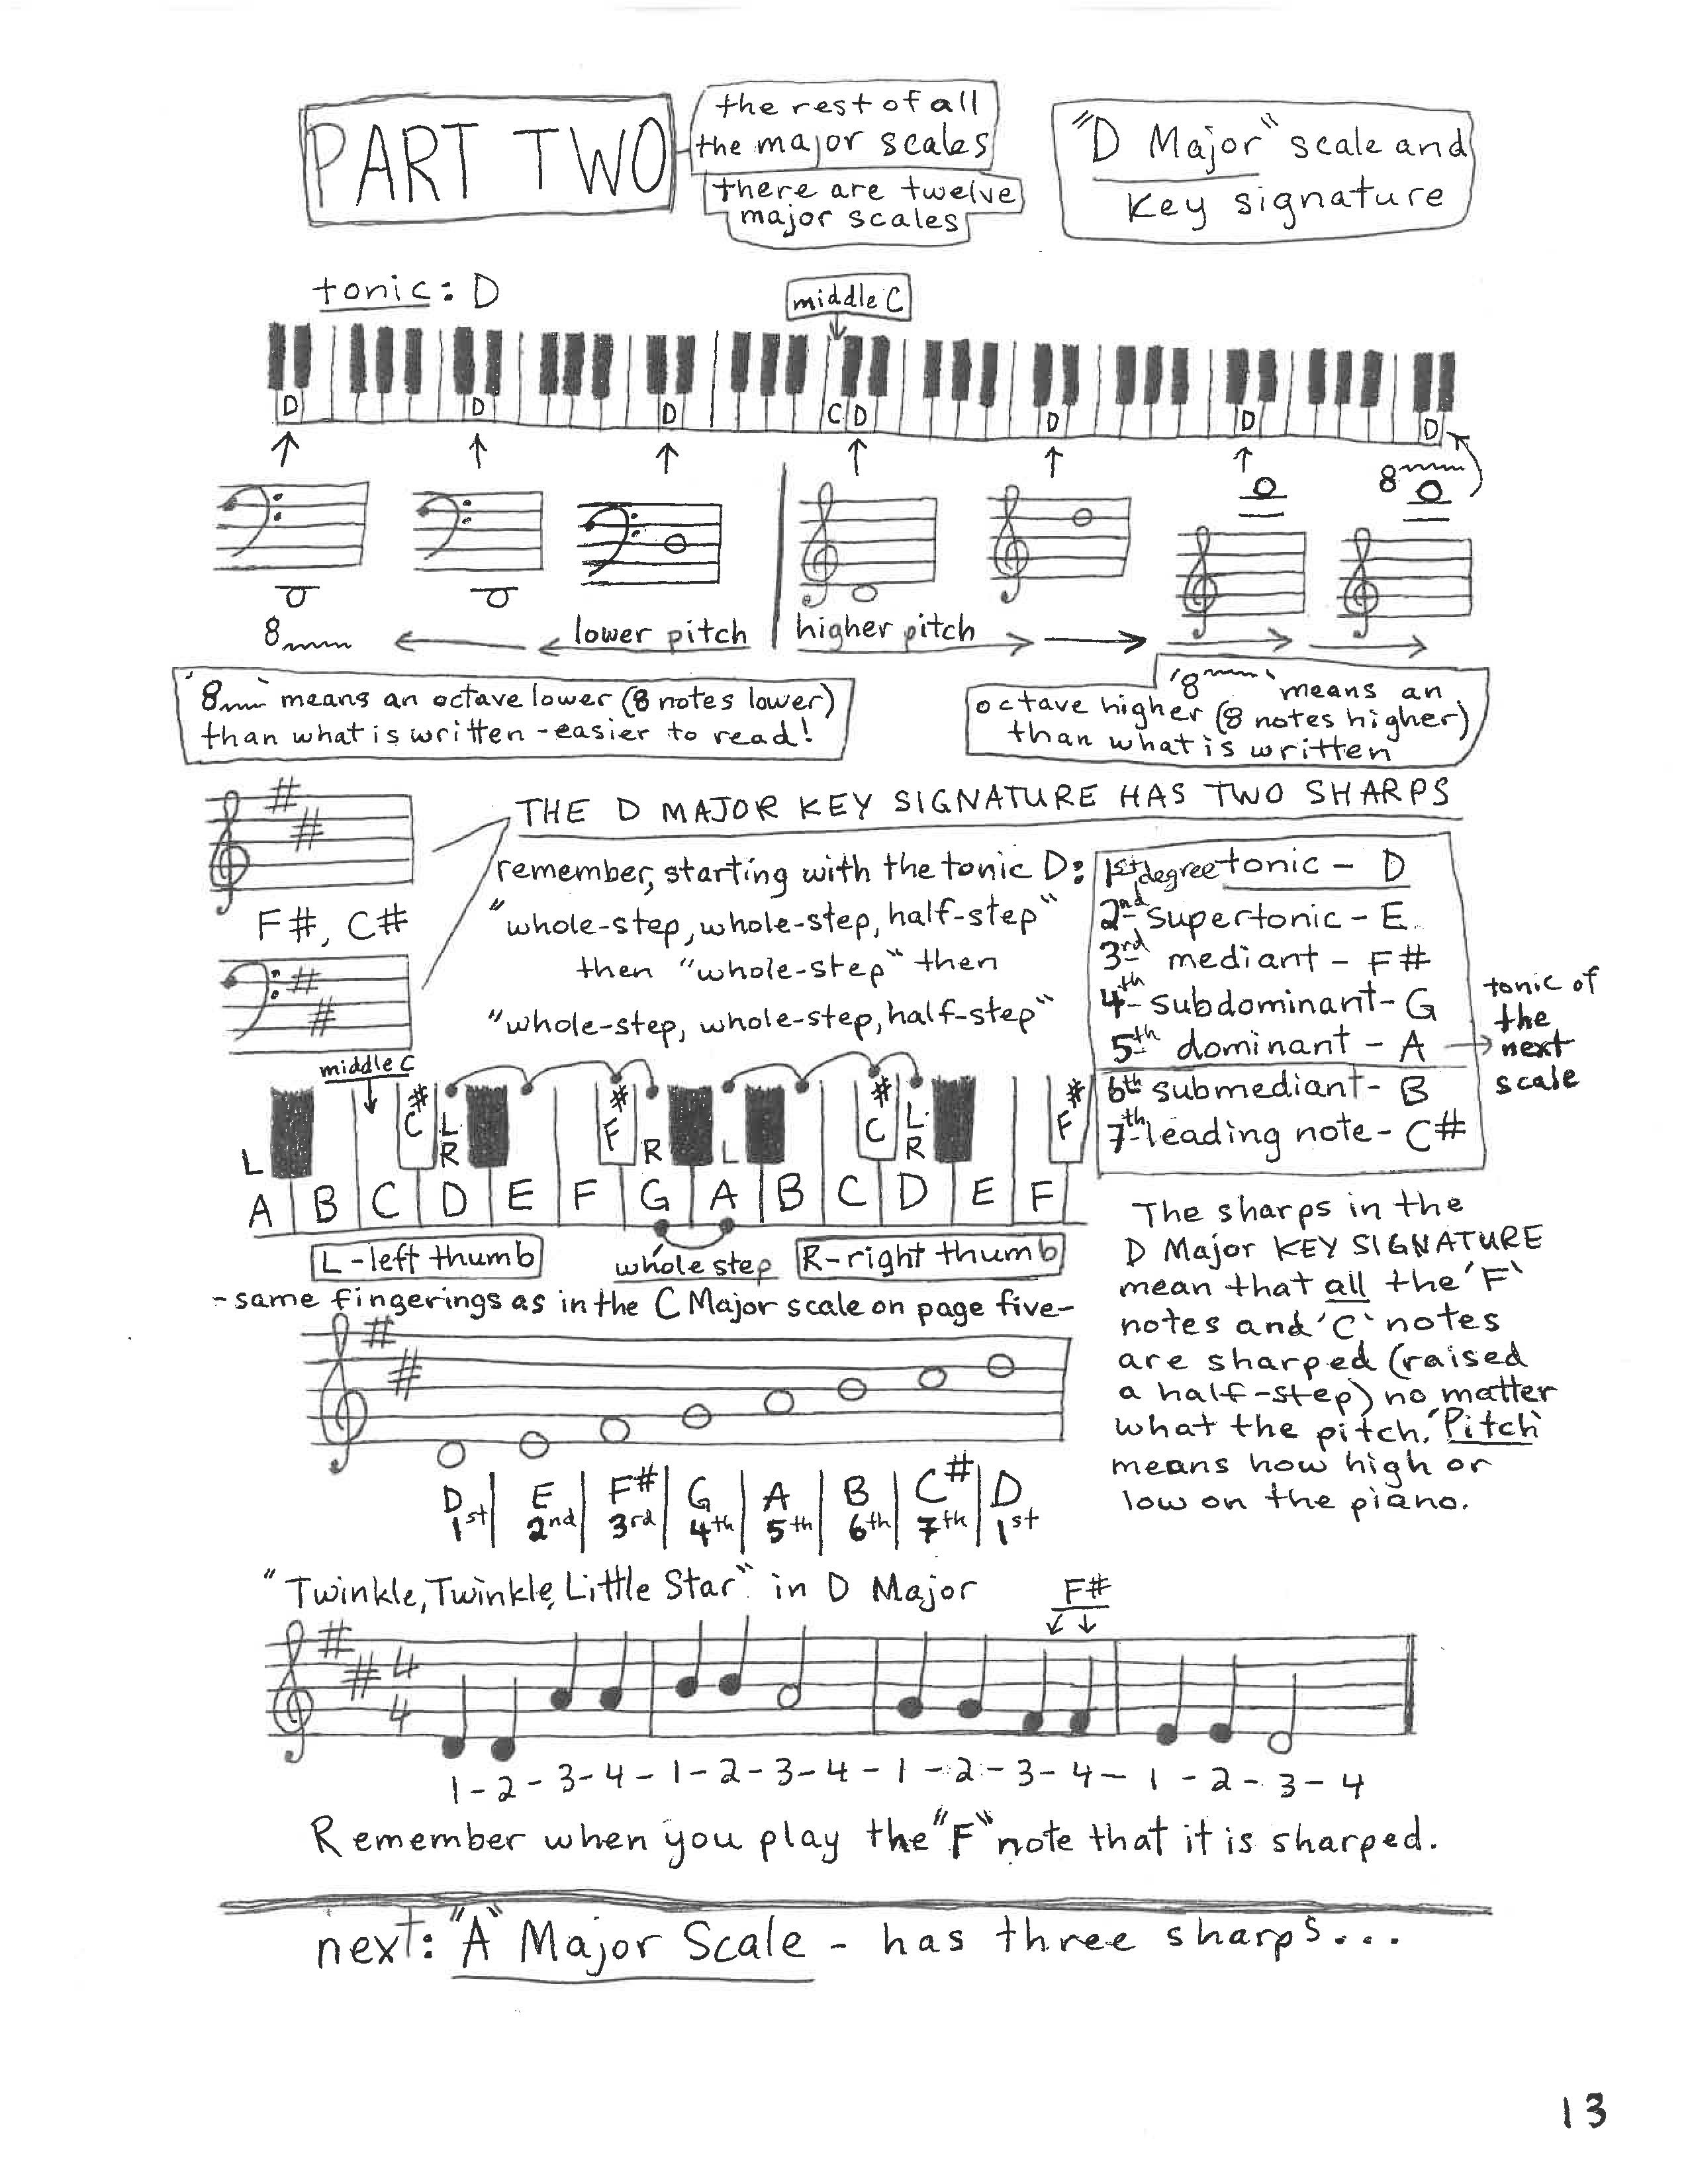 PART TWO
the rest of all
the major scales
there are twelve
major scales
"D Major" scale and
Key signature
tonic: D
middle C
D D D C D D D D
8
8
lower pitch
higher pitch
'8' means an octave lower (8 notes lower)
than what is written - easier to read!
'8' means an
octave higher (8 notes higher)
than what is written
THE D MAJOR KEY SIGNATURE HAS TWO SHARPS
F#, C#
remember, starting with the tonic D:
"whole-step, whole-step, half-step"
then "whole-step" then
"whole-step, whole-step, half-step"
1st degree tonic - D
2nd supertonic - E
3rd mediant - F#
4th subdominant - G
5th dominant - A
6th submediant - B
7th leading note - C#
tonic of
the
next
scale
middle C
# # # #
C L F R L C L F
L R R
A B C D E F G A B C D E F
L - left thumb
whole step
R - right thumb
- same fingerings as in the C Major scale on page five -
The sharps in the
D Major KEY SIGNATURE
mean that all the 'F'
notes and 'C' notes
are sharped (raised
a half-step) no matter
what the pitch. 'Pitch'
means how high or
low on the piano.
D E F# G A B C# D
1st 2nd 3rd 4th 5th 6th 7th 1st
"Twinkle, Twinkle, Little Star" in D Major
F#
4
4
1 - 2 - 3 - 4 - 1 - 2 - 3 - 4 - 1 - 2 - 3 - 4 - 1 - 2 - 3 - 4
Remember when you play the "F" note that it is sharped.
next: "A" Major Scale - has three sharps...
13